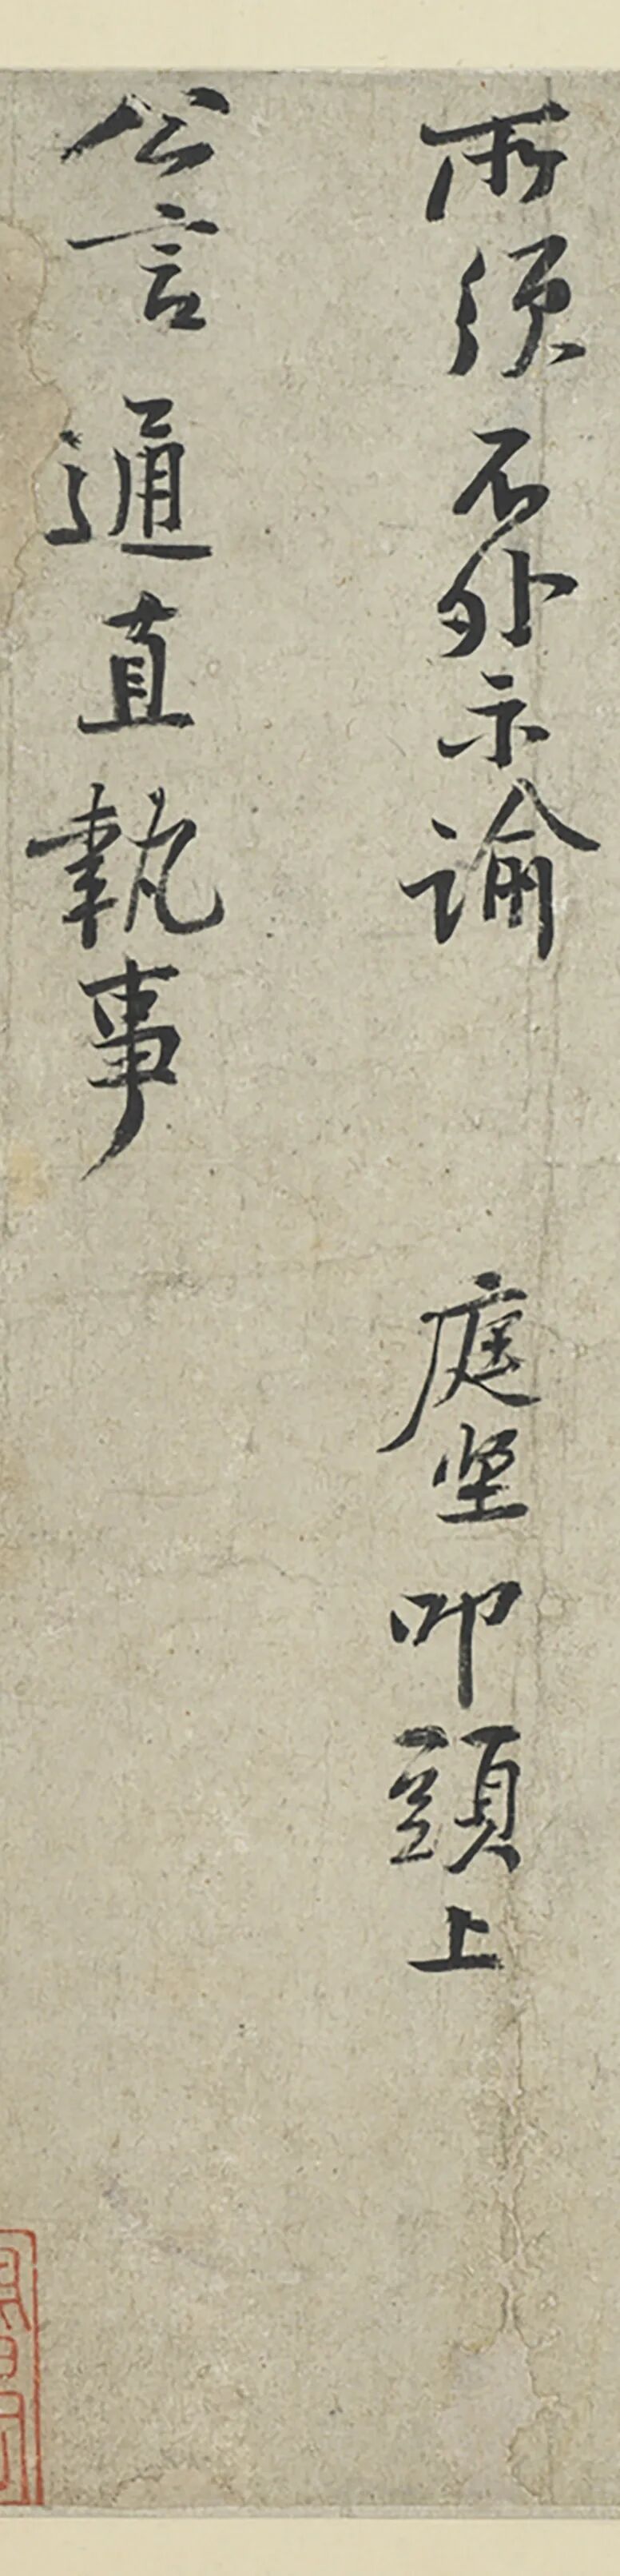 所须不外示谕 庭坚叩頭上
公言通直執事